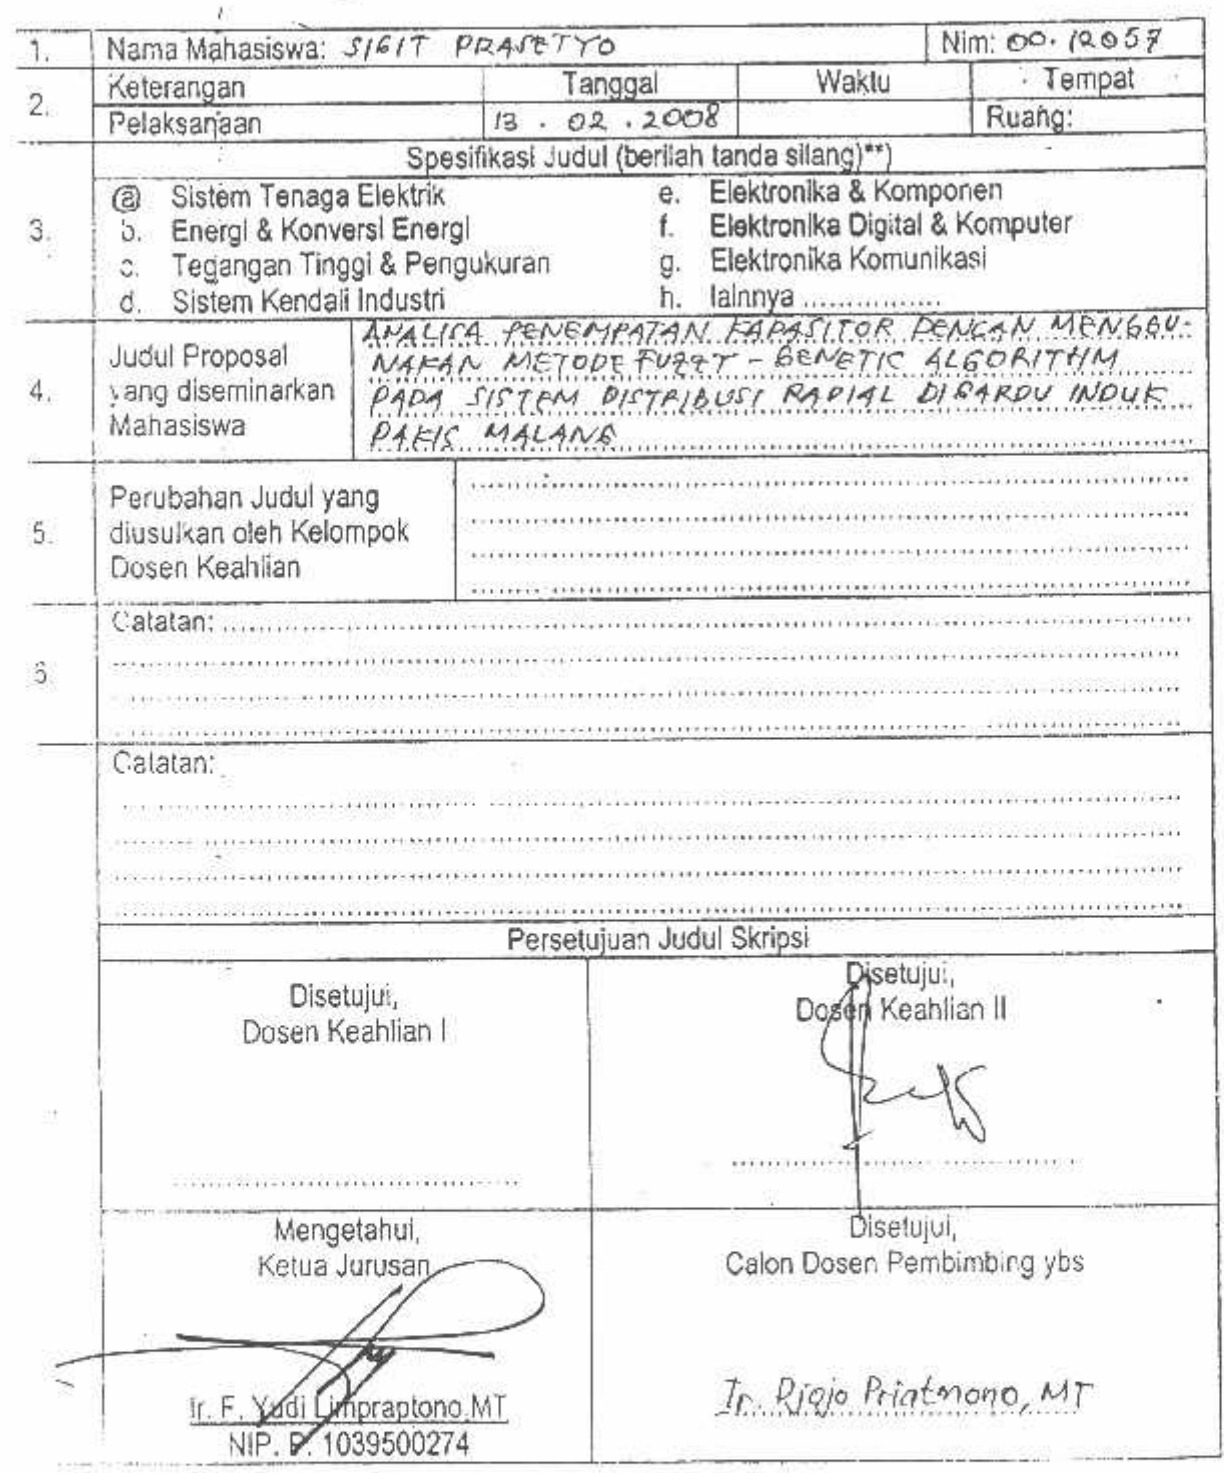 1. Nama Mahasiswa: SIGIT PRASETYO Nim: 00.12057
2. Keterangan Tanggal Waktu Tempat
Pelaksanaan 13 . 02 . 2008 Ruang:
Spesifikasi Judul (berilah tanda silang)**)
3.
a Sistem Tenaga Elektrik e. Elektronika & Komponen
b. Energi & Konversi Energi f. Elektronika Digital & Komputer
c. Tegangan Tinggi & Pengukuran g. Elektronika Komunikasi
d. Sistem Kendali Industri h. lainnya ................
4.
Judul Proposal
yang diseminarkan
Mahasiswa
ANALISA PENEMPATAN KAPASITOR DENGAN MENGGU-
NAKAN METODE FUZZY - GENETIC ALGORITHM
PADA SISTEM DISTRIBUSI RADIAL DI GARDU INDUK
PAKIS MALANG
5.
Perubahan Judul yang
diusulkan oleh Kelompok
Dosen Keahlian
6.
Catatan:
Catatan:
Persetujuan Judul Skripsi
Disetujui,
Dosen Keahlian I
Disetujui,
Dosen Keahlian II
Mengetahui,
Ketua Jurusan
Ir. F. Yudi Limpraptono,MT
NIP. P. 1039500274
Disetujui,
Calon Dosen Pembimbing ybs
Ir. Djojo Priatmono, MT